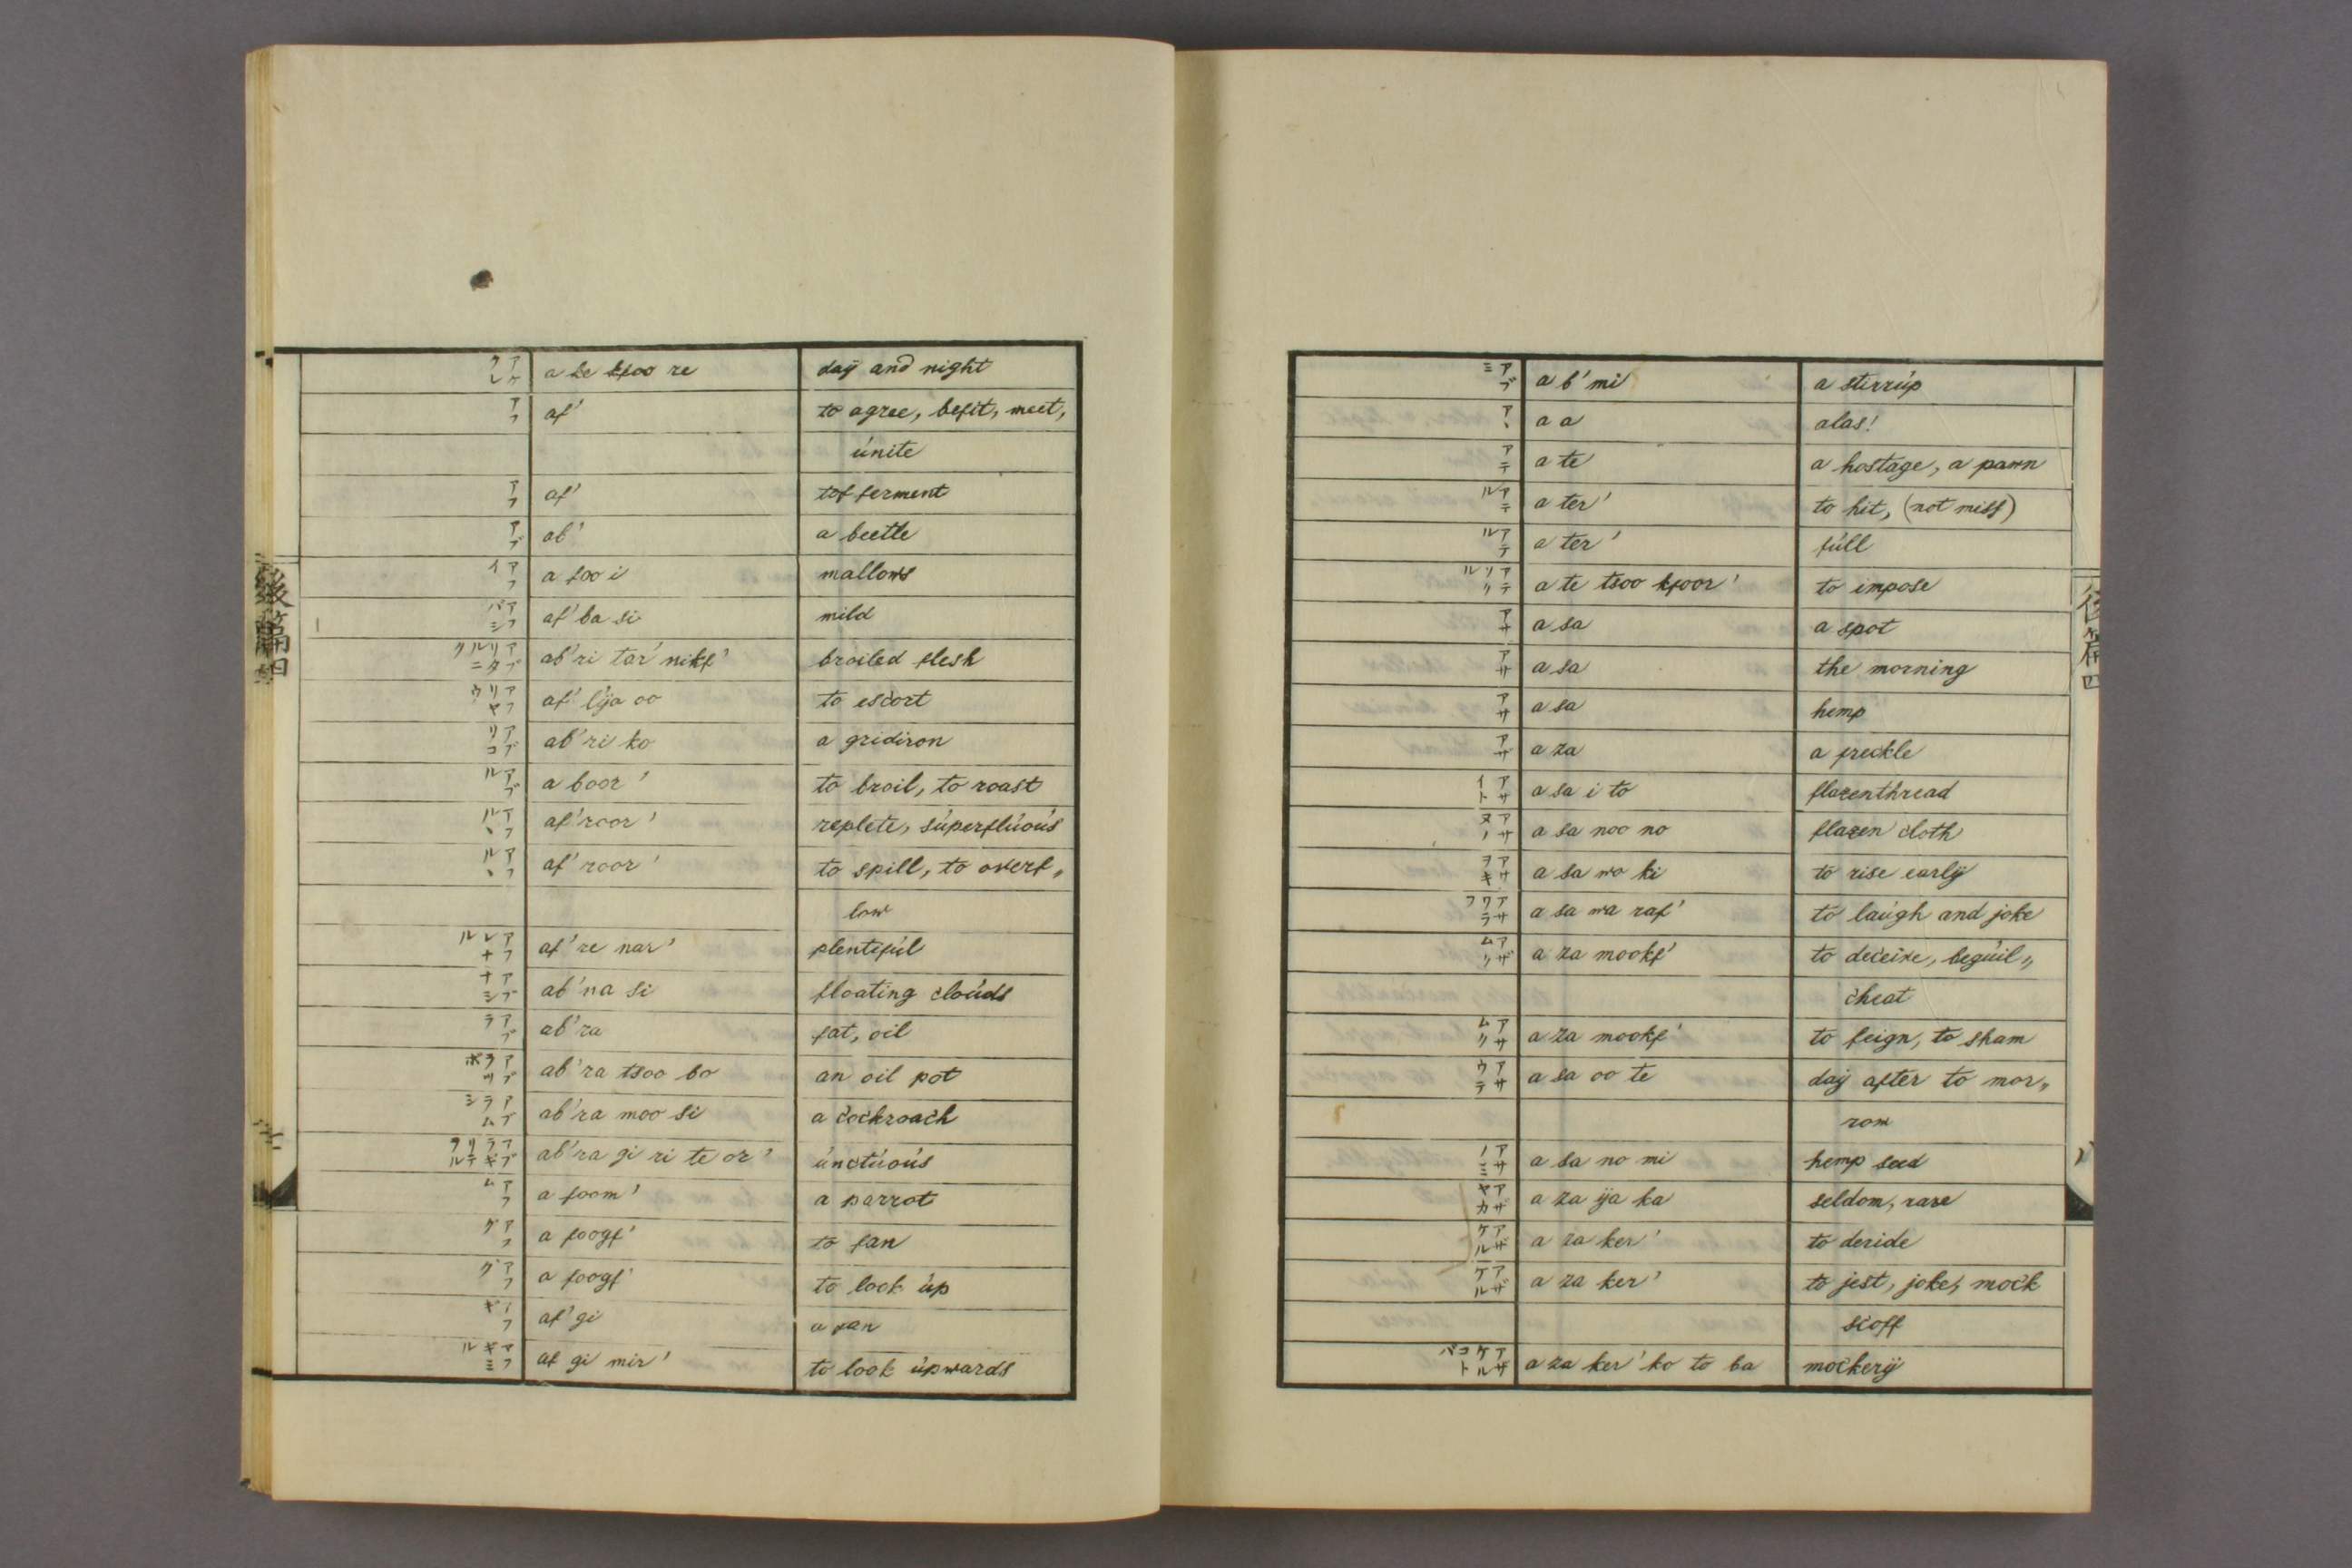 アケクレ a ke kfoo re day and night
アフ af' to agree, befit, meet,
únite
アフ af' tof ferment
アブ ab' a beetle
アフイ a foo i mallows
アフバシ af' ba si mild
アブリタルニク ab'ri tar' nikf' broiled flesh
アフリヤウ af' lÿa oo to escort
アブリコ ab'ri ko a gridiron
アブル a boor' to broil, to roast
アフヽル af'roor' replete, súperflúoús
アフヽル af'roor' to spill, to overf„
low
アフレナル af're nar' plentifúl
アブナシ ab'na si floating cloúds
アブラ ab'ra fat, oil
アブラツボ ab'ra tsoo bo an oil pot
アブラムシ ab'ra moo si a cockroach
アブラギリテヲル ab'ra gi ri te or' únctúoús
アフム a foom' a parrot
アフグ a foogf' to fan
アフグ a foogf' to look úp
アフギ af' gi a fan
アフギミル af gi mir' to look úpwards
後篇四
アブミ a b' mi a stirrúp
アヽ a a alas!
アテ a te a hostage, a pawn
アテル a ter' to hit, (not miss)
アテル a ter' fúll
アテツクル a te tsoo kfoor' to impose
アサ a sa a spot
アサ a sa the morning
アサ a sa hemp
アザ a za a freckle
アサイト a sa i to flaxenthread
アサヌノ a sa noo no flaxen cloth
アサヲキ a sa wo ki to rise earlÿ
アサワラフ a sa wa raf' to laúgh and joke
アザムク a za mookf' to deceive, begúil„
cheat
アザムク a za mookf' to feign, to sham
アサウテ a sa oo te daÿ after to mor„
row
アサノミ a sa no mi hemp seed
アザヤカ a za ÿa ka seldom, rare
アザケル a za ker' to deride
アザケル a za ker' to jest, joke, mock
scoff
アザケルコトバ a za ker' ko to ba mockerÿ